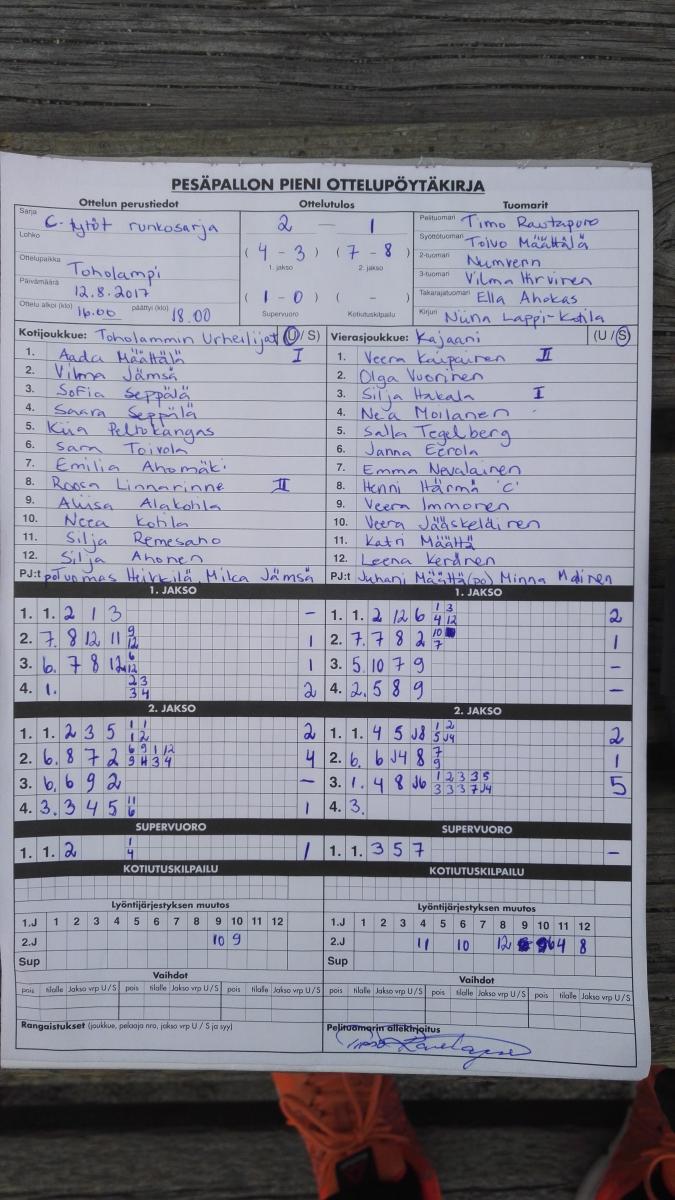 PESÄPALLON PIENI OTTELUPÖYTÄKIRJA
Ottelun perustiedot Ottelutulos Tuomarit
Sarja C-tytöt runkosarja
Lohko
Ottelupaikka Toholampi
Päivämäärä 12.8.2017
Ottelu alkoi (klo) 16.00 päättyi (klo) 18.00
2 — 1
( 4 - 3 ) ( 7 - 8 )
1. jakso 2. jakso
( 1 - 0 ) ( - )
Supervuoro Kotiutuskilpailu
Pelituomari Timo Rautaporo
Syöttötuomari Toivo Määttälä
2-tuomari
3-tuomari Vilma Hirvinen
Takarajatuomari Ella Ahokas
Kirjuri Niina Lappi-Kotila
Kotijoukkue: Toholammin Urheilijat (U / S)
1. Aada Määttälä I
2. Vilma Jämsä
3. Sofia Seppälä
4. Saara Seppälä
5. Kiia Peltokangas
6. Sara Toivola
7. Emilia Ahomäki
8. Roosa Linnarinne II
9. Aliisa Alakotila
10. Neea Kotila
11. Silja Remesaho
12. Silja Ahonen
PJ:t Tuomas Heikkilä, Milca Jämsä
Vierasjoukkue: Kajaani (U / S)
1. Veera Kaipainen II
2. Olga Vuorinen
3. Silja Hakala I
4. Nea Moilanen
5. Salla Tegelberg
6. Janna Eerola
7. Emma Nevalainen
8. Henni Härmä 'C'
9. Veera Immonen
10. Veera Jääskeläinen
11. Katri Määttä
12. Leena Keränen
PJ:t Juhani Määttä (po) Minna
1. JAKSO
1. 1. 2 1 3 –
2. 7. 8 12 11 9 12 1
3. 6. 7 8 12 6 12 1
4. 1. 2 3 3 4 2
2. JAKSO
1. 1. 2 3 5 1 1 1 2 2
2. 6. 8 7 2 6 9 1 12 9 11 3 4 4
3. 6. 6 9 2 –
4. 3. 3 4 5 11 6 1
SUPERVUORO
1. 1. 2 1 4 1
KOTIUTUSKILPAILU
1. JAKSO
1. 1. 2 12 6 1 3 4 12 2
2. 7. 7 8 2 10 7 1
3. 5. 10 7 9 –
4. 2. 5 8 9 –
2. JAKSO
1. 1. 4 5 J8 1 2 5 J4 2
2. 6. 6 J4 8 7 9 1
3. 1. 4 8 J6 1 2 3 3 5 3 3 3 7 J4 5
4. 3.
SUPERVUORO
1. 1. 3 5 7 –
KOTIUTUSKILPAILU
Lyöntijärjestyksen muutos
1.J 1 2 3 4 5 6 7 8 9 10 11 12
2.J 10 9
Sup
Vaihdot
pois tilalle Jakso vrp U / S pois tilalle Jakso vrp U / S pois tilalle Jakso vrp U / S
Rangaistukset (joukkue, pelaaja nro, jakso vrp U / S ja syy)
Lyöntijärjestyksen muutos
1.J 1 2 3 4 5 6 7 8 9 10 11 12
2.J 11 10 12 4 8
Sup
Vaihdot
pois tilalle Jakso vrp U / S pois tilalle Jakso vrp U / S pois tilalle Jakso vrp U / S
Pelituomarin allekirjoitus